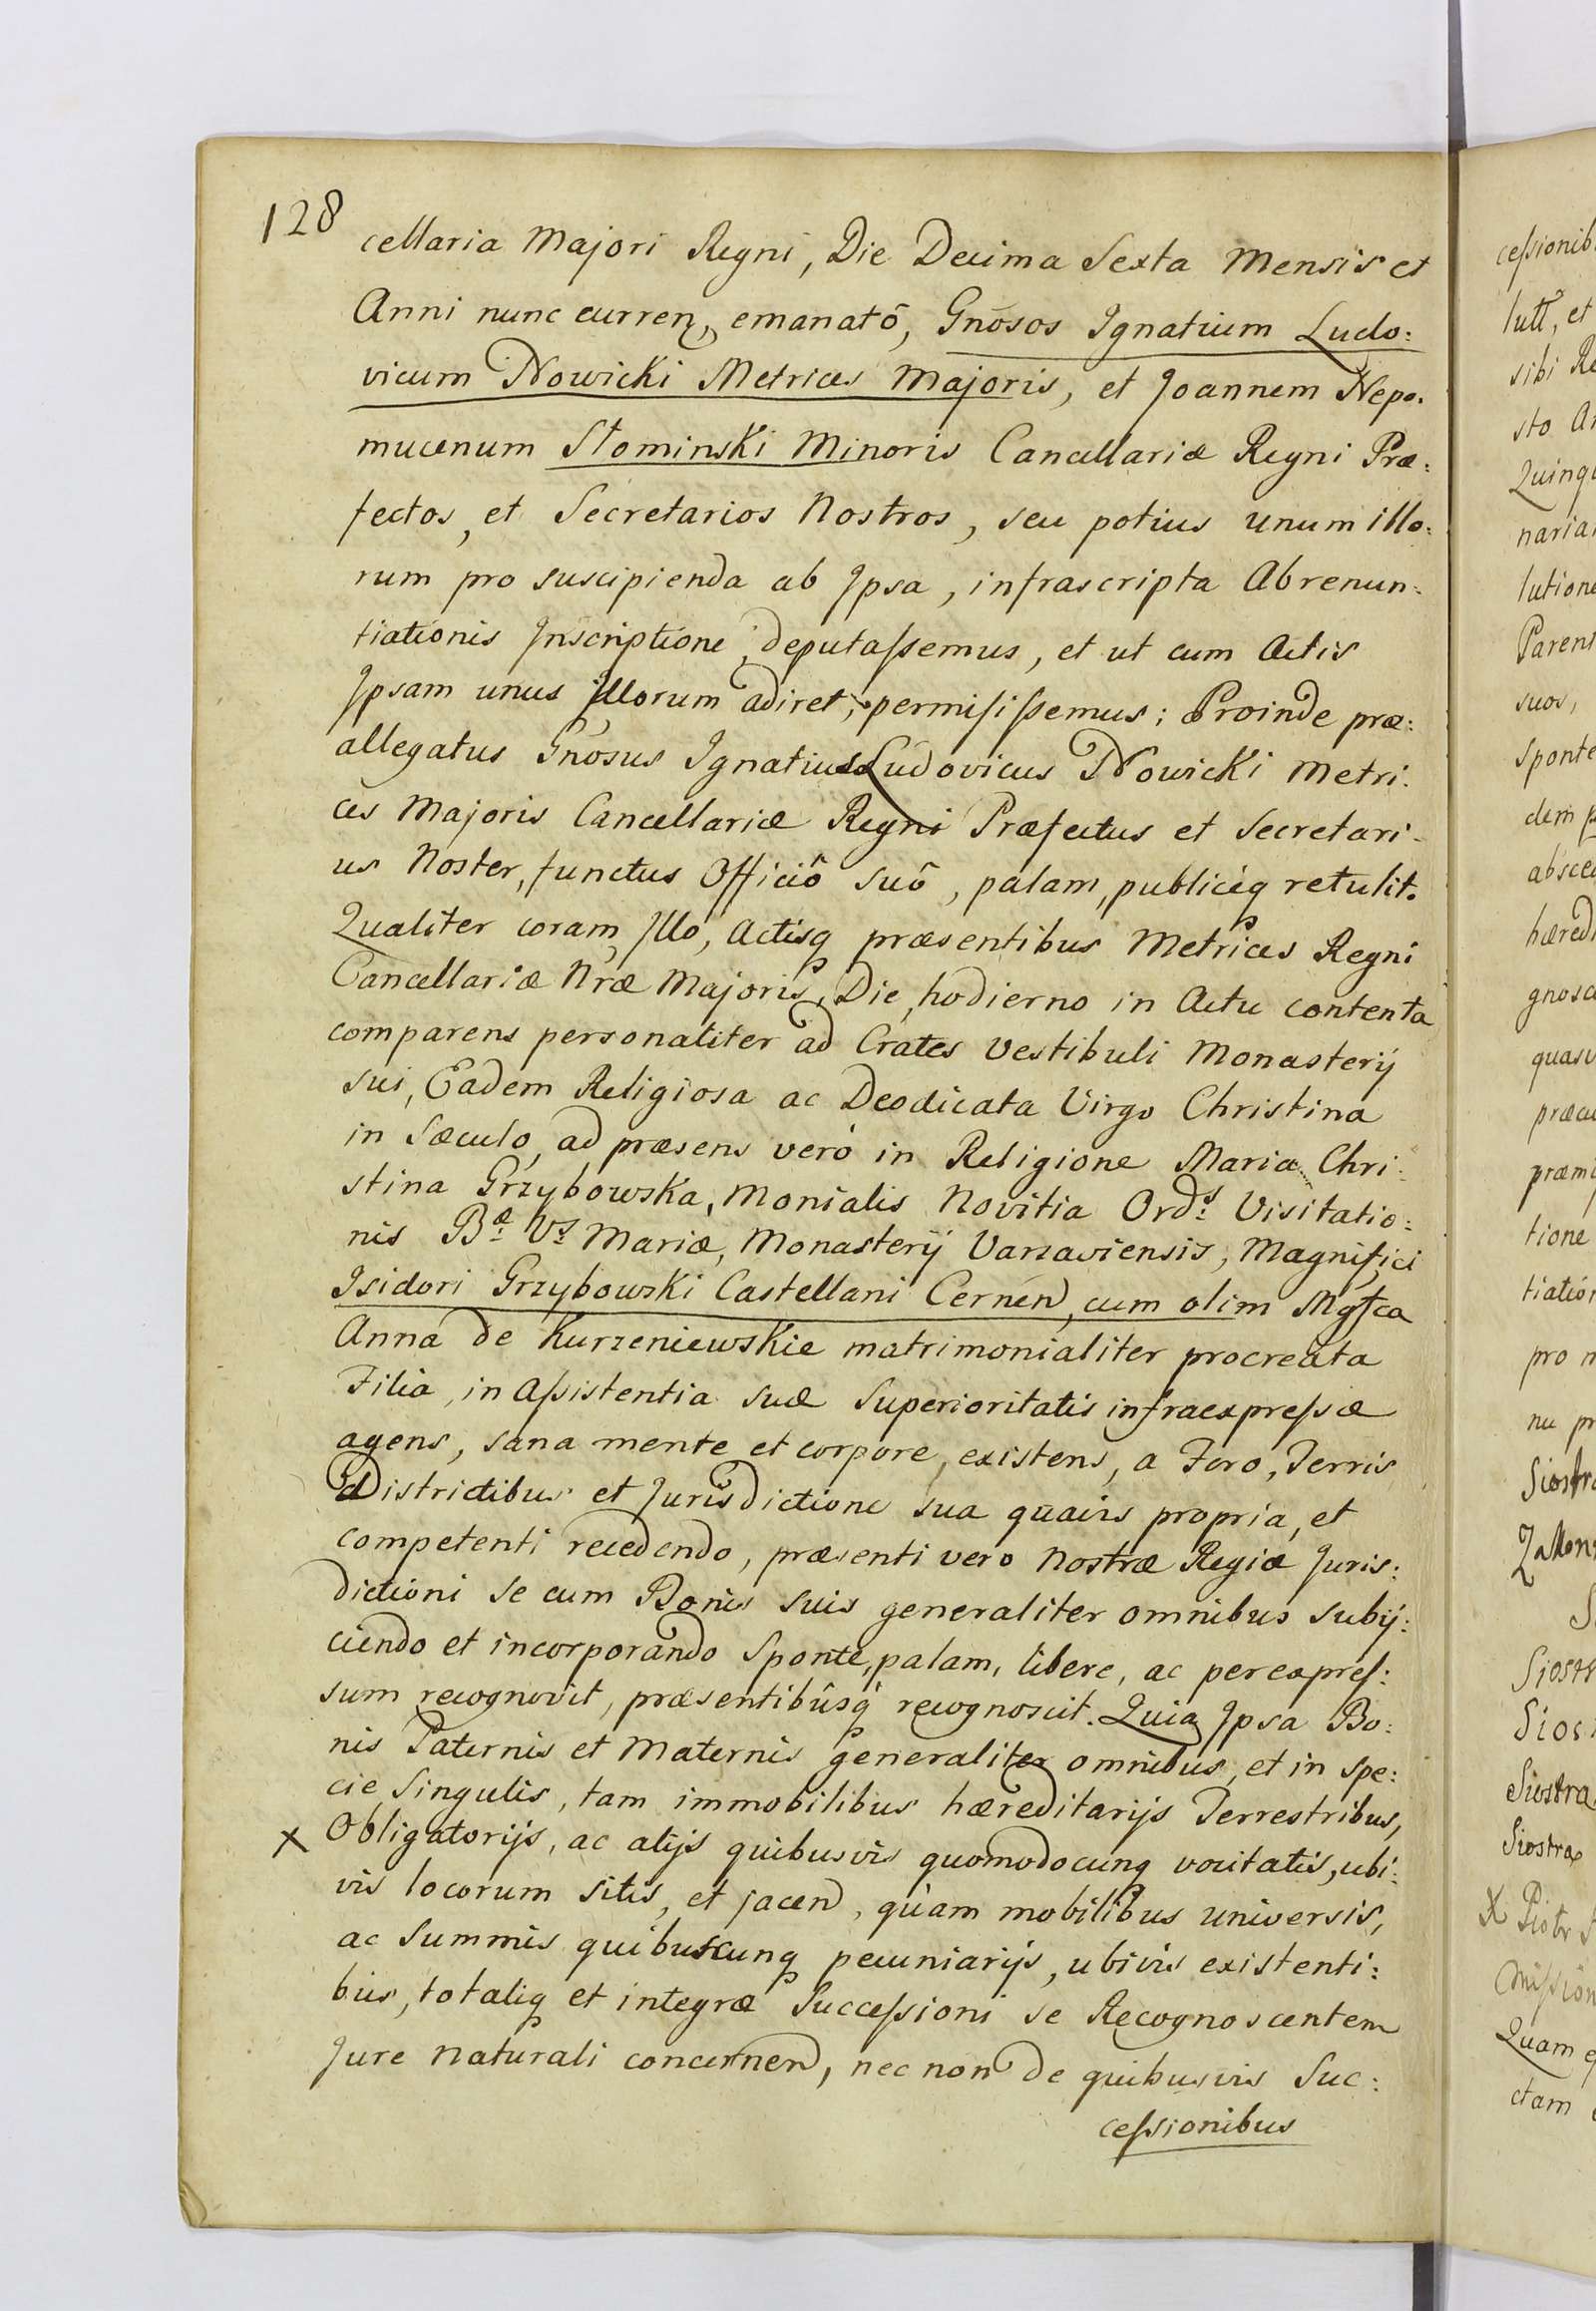 128
cellaria Majori Regni, Die Decima Sexta Mensis et
Anni nunc curren, emanatô, Gnosos Ignatium Ludo:
vicum Nowicki Metrices Majoris, et Joannem Nepo:
mucenum Słominski Minoris Cancellariæ Regni Præ:
fectos, et Secretarios Nostros, seu potius unum illo:
rum pro suscipienda ab Ipsa, infrascripta Abrenun:
tiationis Inscriptione, deputassemus, et ut cum Actis
Ipsam unus Illorum adiret, permisissemus; Proinde præ:
allegatus Gnosus Ignatius Ludovicus Nowicki Metri:
ces Majoris Cancellariæ Regni Præfectus et Secretari:
us Noster, functus Officiô suô, palam, publicéq retulit.
Qualiter coram Illo, Actisq præsentibus Metrices Regni
Cancellariæ Nræ Majoris, Die hodierno in Actu contenta
comparens personaliter ad Crates Vestibuli Monasterij
sui, Eadem Religiosa ac Deodicata Virgo Christina
in Sæculo, ad præsens veró in Religione Maria Chri:
stina Grzybowska, Monialis Novitia Ords Visitatio:
nis Bæ Vs Mariæ, Monasterij Varsaviensis, Magnifici
Isidori Grzybowski Castellani Cernen, cum olim Mgfca
Anna de Kurzeniewskie matrimonialiter procreata
Filia, in Assistentia suæ Superioritatis infraexpressæ
agens, sana mente et corpore, existens, a Foro, Terris
Districtibus et Jurisdictione sua quavis propria, et
competenti recedendo, præsenti vero Nostræ Regiæ Juris:
dictioni se cum Bonis suis generaliter omnibus subij:
ciendo et incorporando Sponte, palam, libere, ac perexpres:
sum recognovit, præsentibûsq recognoscit. Quia Ipsa Bo:
nis Paternis et Maternis generaliter omnibus, et in spe:
cie singulis, tam immobilibus hæreditarijs Terrestribus,
x Obligatorijs, ac alijs quibusvis quomodocunq vocitatis, ubi:
vis locorum sitis, et jacen, quàm mobilibus universis,
ac Summis quibuscunq pecuniarijs, ubivis existenti:
bus, totaliq et integræ Successioni se Recognoscentem
Jure naturali concernen, nec non de quibusvis Suc:
cessionibus
cessionib
lutt, et
sibi Re
sto
naria
lutione
Parent
suos,
Sponte
dem
hæredi
gnosc
præm
tione
pro
nu pr
Siostra
Siostra
ctam